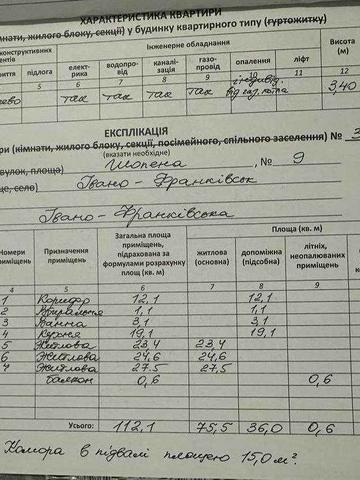 ХАРАКТЕРИСТИКА КВАРТИРИ
мнати, жилого блоку, секції) у будинку квартирного типу (гуртожитку)
конструктивних
ентів
Інженерне обладнання
Висота (м)
риття підлога елект-рика водопро-від каналі-зація газо-провід опалення ліфт
5 6 7 8 9 10 11 12
ево так так так так індивід. від газ. котла 3,40
ЕКСПЛІКАЦІЯ
ри (кімнати, жилого блоку, секції, посімейного, спільного заселення) № 3
(вказати необхідне)
вулок, площа) Шопена, № 9
ще, село) Івано-Франківськ
Івано-Франківська
Номери приміщень Призначення приміщень Загальна площа приміщень, підрахована за формулами розрахунку площ (кв. м) Площа (кв. м)
житлова (основна) допоміжна (підсобна) літніх, неопалюваних приміщень
4 5 6 7 8 9
1 Коридор 12,1 12,1
2 Вбиральня 1,1 1,1
3 Ванна 3,1 3,1
4 Кухня 19,1 19,1
5 Житлова 23,4 23,4
6 Житлова 24,6 24,6
7 Житлова 27.5 27.5
балкон 0,6 0,6
Усього: 112,1 75,5 36,0 0,6
Комора в підвалі площею 15,0 м².